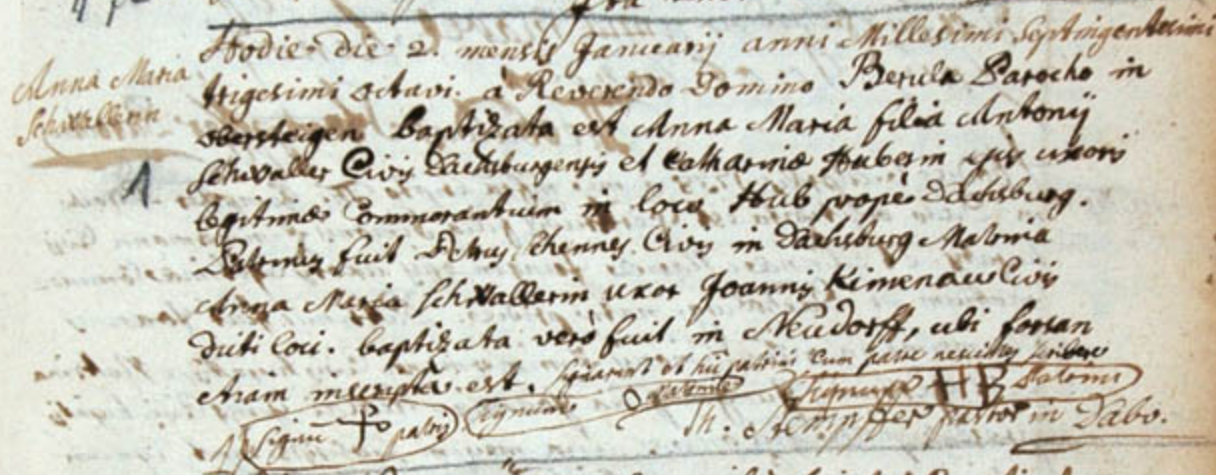 Hodie die 2. mensis Januarij anni Millesimi Septingentesimi
Anna Maria
Schwallerin
trigesimi octavi. à Reverendo Domino Parocho in
obersteigen baptizata est Anna Maria filia Antonij
Schwaller Civis Dachsburgensis et Catharinæ Huberin ejus uxoris
1
legitimæ commorantium in loco Hub propè Dachsburg.
Patrinus fuit Petrus Civis in Dachsburg Matrina
Anna Maria Schwallerin uxor Joannis Kimenau Civis
dicti loci. baptizata verò fuit in Neudorff, ubi forsan
etiam inscripta est. signarunt et hi patrini cum patre nescientes scribere
signum patris signum matrinæ signum HB Patrini
Stempffer pastor in Dabo.